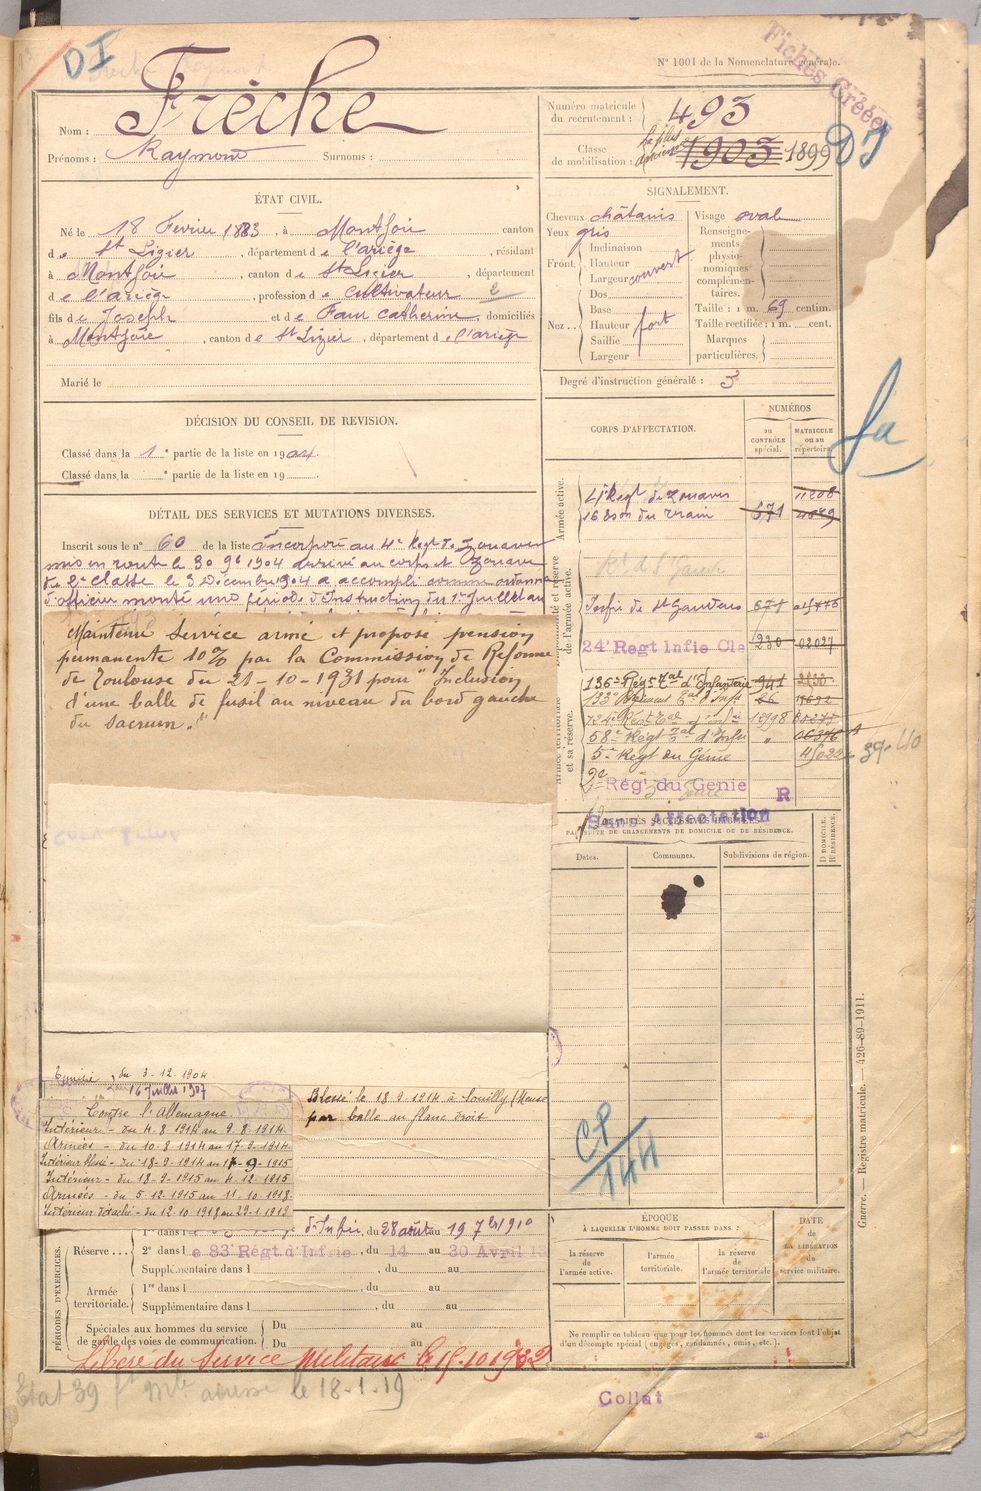 DI
N° 1001 de la Nomenclature générale.
Fiches Créées
Nom : Frèche
Prénoms : Raymond Surnoms :
Numéro matricule du recrutement : 493
Classe de mobilisation : 1903 1899
DI
ÉTAT CIVIL.
Né le 18 Fevrier 1883, à Montjoie canton
d e St Lizier, département d e l'ariège, résidant
à Montjoie, canton d e St Lizier, département
d e l'ariège, profession d e cultivateur 2
fils d e Joseph et d e Faur Catherine, domiciliés
à Montjoie, canton d e St Lizier, département d e l'ariège
Marié le
SIGNALEMENT.
Cheveux châtains Visage oval
Yeux gris
Front Inclinaison
Hauteur
Largeur couvert
Nez Dos
Base
Hauteur fort
Saillie
Largeur
Renseignements physionomiques complémentaires.
Taille : 1 m. 69 centim.
Taille rectifiée : 1 m. cent.
Marques particulières.
Degré d'instruction générale : 3
DÉCISION DU CONSEIL DE REVISION.
Classé dans la 1e partie de la liste en 1904.
Classé dans la e partie de la liste en 19
DÉTAIL DES SERVICES ET MUTATIONS DIVERSES.
Inscrit sous le n° 60 de la liste Incorporé au 4e Régt de Zouaves
mis en route le 30 9e 1904 arrivé au corps et Zouave
de 2e classe le 3 Décembre 1904 a accompli comme ordonnance
d'officier monté une période d'Instruction du 1er Juillet au
Maintenu Service armé et proposé pension
permanente 10% par la Commission de Réforme
de Toulouse du 21-10-1931 pour "Inclusion
d'une balle de fusil au niveau du bord gauche
du sacrum."
CORPS D'AFFECTATION.
NUMÉROS
au CONTRÔLE spécial.
MATRICULE ou au répertoire.
Armée active.
4e Régt de Zouaves 11208
16 Eson du train 671 4879
Disponibilité et réserve de l'armée active.
Rt d St Gaudens
Infie de St Gaudens 671 015776
24e Regt Infie Cle 230 02027
Armée territoriale et sa réserve.
136e Régt Tal d'Infanterie 941
133e
58e Régt Tal d'Infie " 06376
5e Régt du Génie
39-40
2e Régt du Genie R
Sans Affectation
fa
LOCALITÉS SUCCESSIVES HABITÉES
PAR SUITE DE CHANGEMENTS DE DOMICILE OU DE RÉSIDENCE.
Dates. Communes. Subdivisions de région. D DOMICILE. R RÉSIDENCE.
Tunisie du 3-12-1904
au 16 Juillet 1907
Contre l'Allemagne
Intérieur - du 4.8.1914 au 9.8.1914.
Armées - du 10-8-1914 au 17-9-1914.
Intérieur blessé - du 18-9-1914 au 17-9-1915
Intérieur - du 18-9-1915 au 4-12-1915
Armées - du 5-12-1915 au 11-10-1918
Intérieur détaché - du 12-10-1918 au 29-1-1919
Blessé le 18 9 1914 à Louilly (Meuse
par balle au flanc droit
CP
144
PÉRIODES D'EXERCICES.
Réserve... 1re dans l d'Infie, du 28 août au 19 7bre 1910
2e dans l e 83e Régt d'Infrie, du 14 au 30 Avril 19
Supplémentaire dans l , du au
Armée territoriale. 1re dans l , du au
Supplémentaire dans l , du au
Spéciales aux hommes du service de garde des voies de communication. Du au
Du au
Libéré du Service Militaire le 15.10.1932
Etat 39 Mle adresse le 18-1-19
ÉPOQUE
À LAQUELLE L'HOMME DOIT PASSER DANS :
la réserve de l'armée active.
l'armée territoriale.
la réserve de l'armée territoriale
DATE de LA LIBÉRATION du service militaire.
Ne remplir ce tableau que pour les hommes dont les services font l'objet
d'un décompte spécial (engagés, condamnés, omis, etc.).
Collat
Guerre. — Registre matricule. — 426-89-1911.